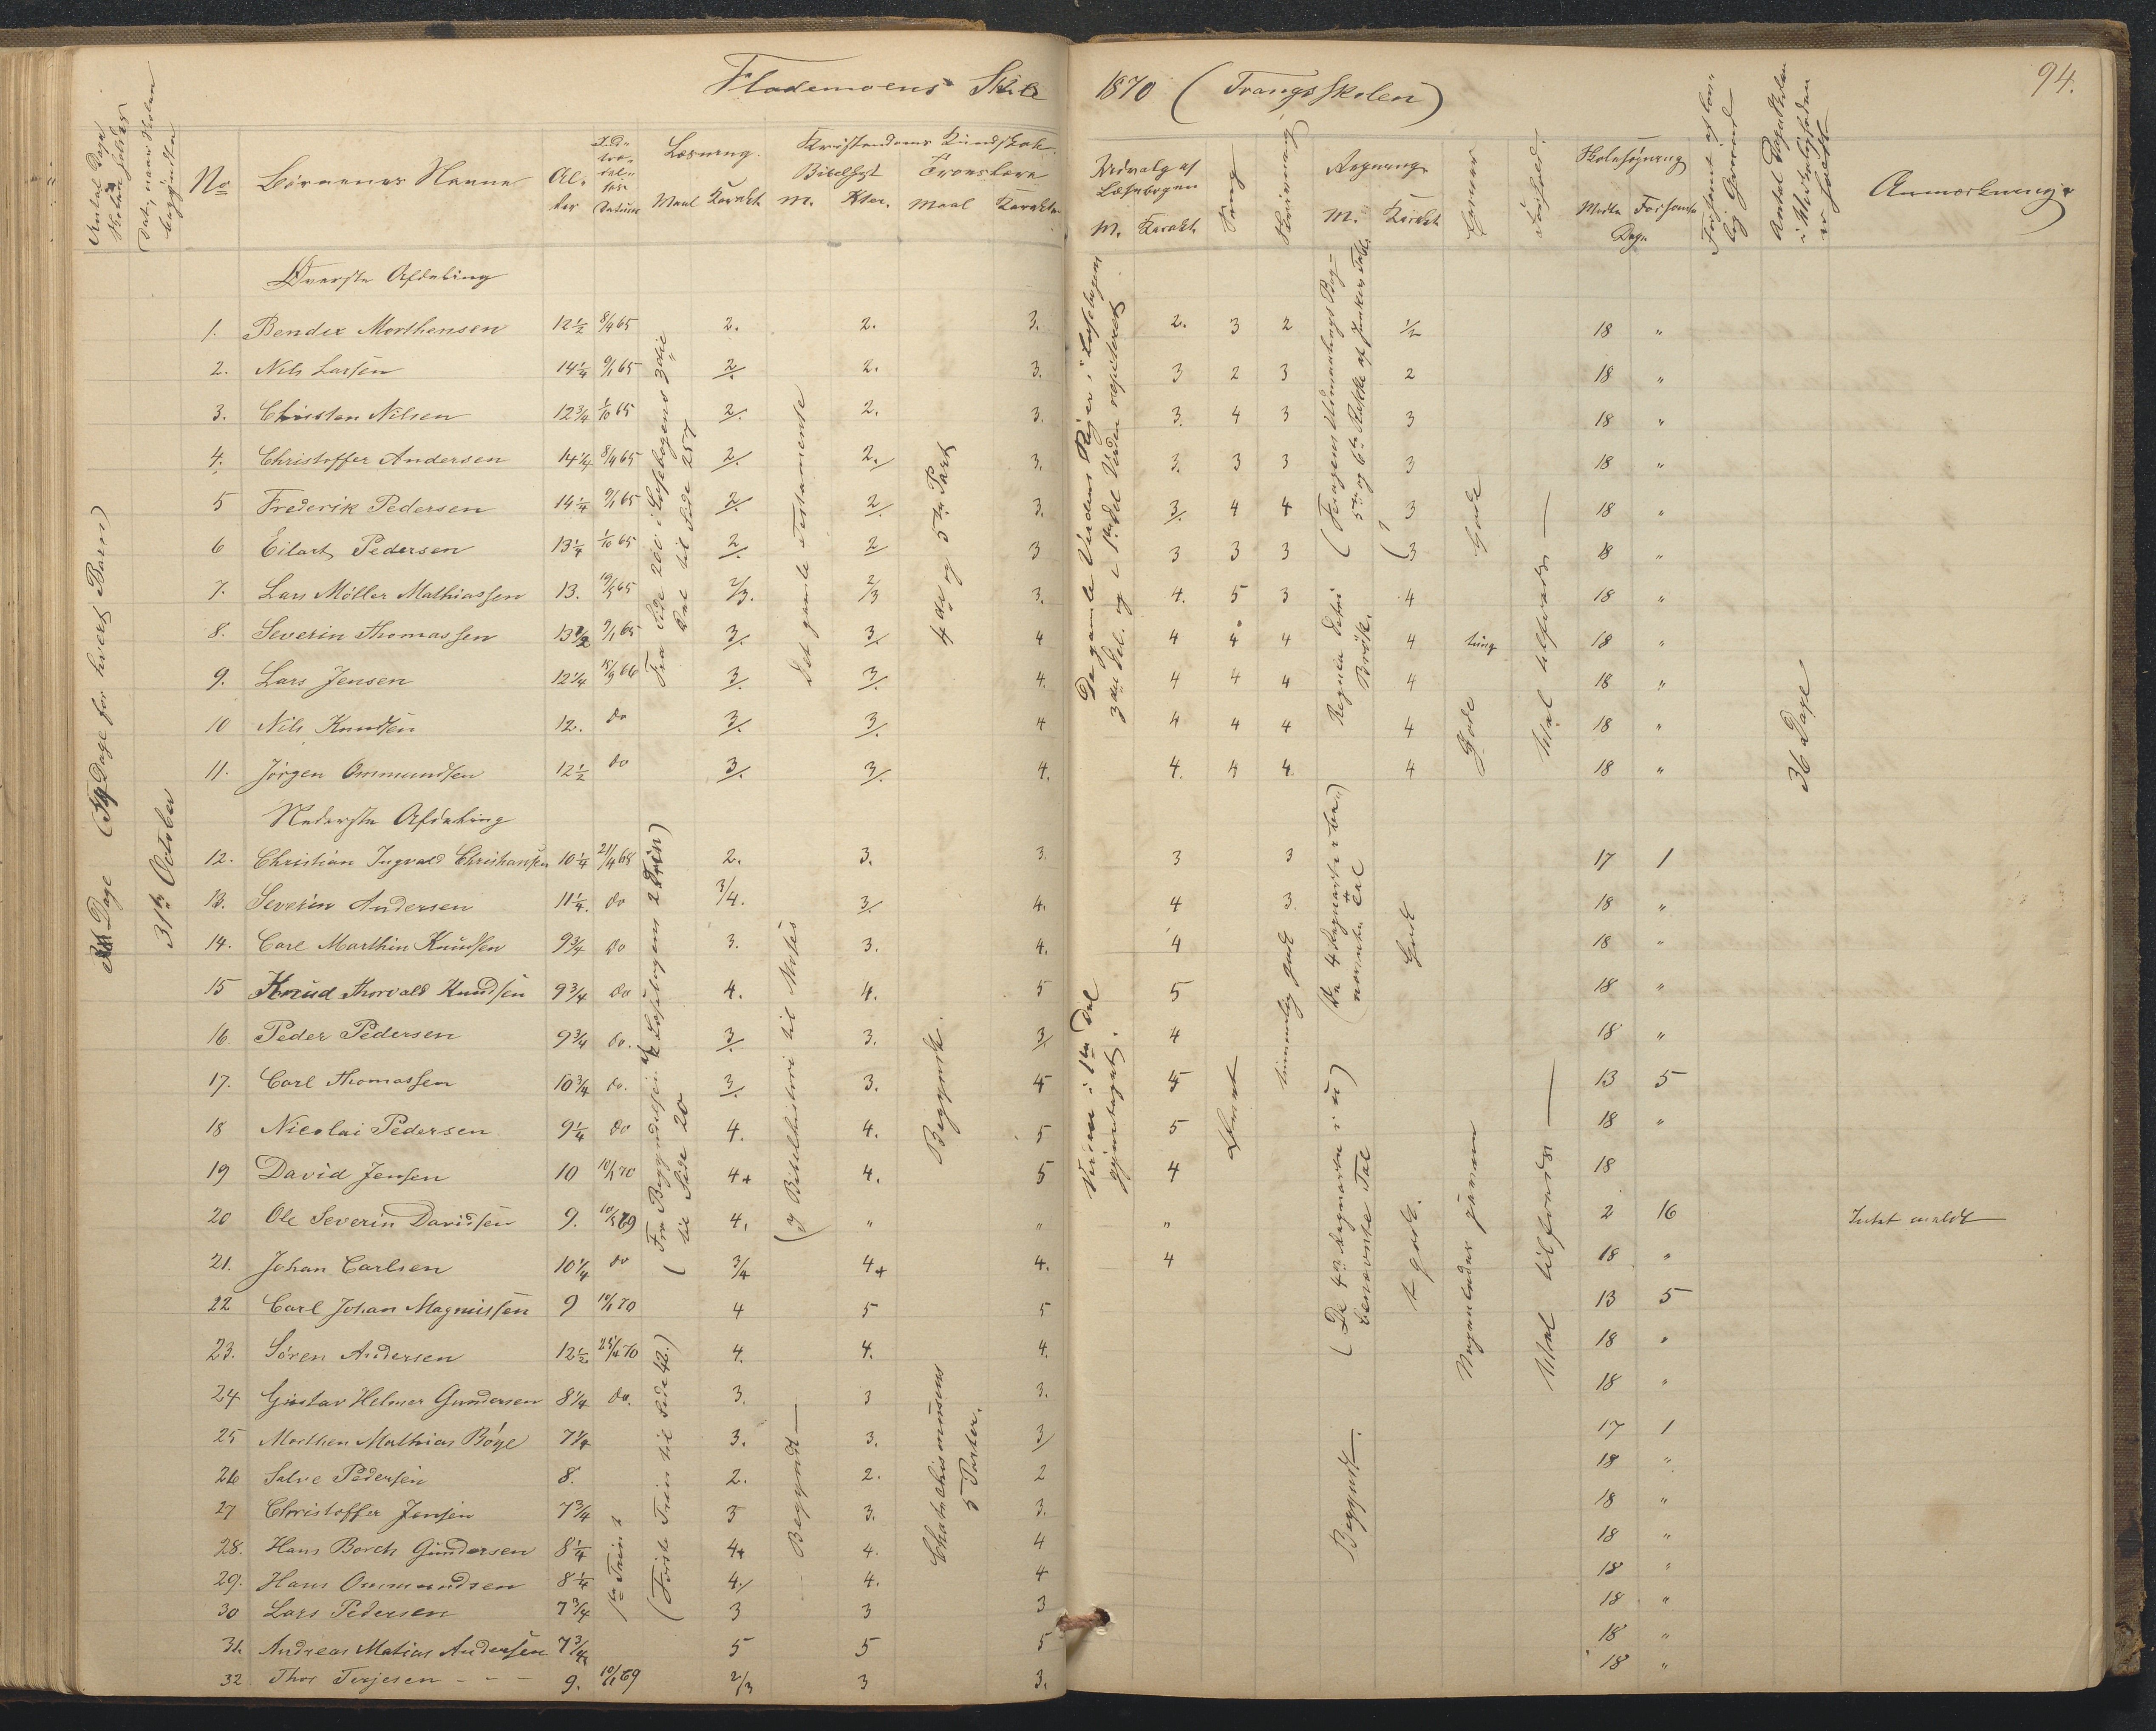 Flodemoens Skole 1870 (Trangsskolen) 94.
Antal Dage Skolen holdes
Dato, naar Skolen begyndte
No Børnenes Navne Alder Indtrædelses Datum Læsning. Maal Karakt Kristendoms Kundskab. Bibelhist M. Kter. Troeslære Maal Karakter
Udvalg af Læsebogen M. Karakt. Sang Skrivning Regning M. Karakt Evner Forhold. Skolesøgning Mødte Forsømte Dage Forsømt af lovlig Grund Antal Dage Skolen i Virkeligheden er holdt Anmærkninger
Dage ( Dage for hvert Barn)
31te October
Øverste Afdeling
1. Bendix Morthensen 12½ 8/4 65 2. 2. 3. 2. 3 2 ½ 18 "
2. Nils Larsen 14¼ 9/1 65 2/. 2. 3. 3 2 3 2 18 "
3. Christen Nilsen 12¾ 1/10 65 2/. 2. 3. 3. 4 3 3 18 "
4. Christoffer Andersen 14¼ 8/4 65 2/. 2./ 3. 3. 3 3 3 18 "
5 Frederik Pedersen 14¼ 9/1 65 2/. 2/. 3. 3/. 4 4 3 18 "
6 Eilart Pedersen 13¼ 1/10 65 2/. 2/ 3 3 3 3 3 18 "
7. Lars Möller Mathiassen 13. 19/5 65 2/3. 2/3 3. 4. 5 3 4 18 "
8. Severin Thomassen 13½ 9/1 65 3/. 3/. 4 4 4 4 4 tung 18 "
9. Lars Jensen 12¼ 15/3 66 3/. 3/. 4. 4 4 4 4 18 "
10 Nils Knudsen 12. do 3/. 3/. 4 4 4 4 4 18 "
11. Jörgen Ommundsen 12½ do 3/. 3/. 4. 4. 4 4 4 18 "
Fra Side 201 i Læsebogens 3die Del til Side 257
Det gamle Testamente
4de og 5te Part
De gamle Verdens Riger i Læsebogens 3die Del. og i 1ste Del Verden repeteret
Regne Detri Brøk.
Gode
Gode
36 Dage
Nederste Afdeling
12. Christian Ingvald Christiansen 10¼ 21/4 68 2. 3. 3. 3 3 17 1
13. Severin Andersen 11¼. do 3/4. 3/. 4. 4 3. 18 "
14. Carl Marthin Knudsen 9¾ do 3. 3. 4. 4 18 "
15 Knud Thorvald Knudsen 9¾ do 4. 4. 5 5 18 "
16. Peder Pedersen 9¾ do. 3/. 3. 3/. 4 18 "
17. Carl Thomassen 10¾ do. 3/. 3. 4 5 13 5
18 Nicolai Pedersen 9¼ do 4. 4. 5 5 18 "
19 David Jensen 10 10/1 70 4+ 4. 5 4 18
20 Ole Severin Davidsen 9. 10/5 69 4. " " " 2 16 Intet meldt
21. Johan Carlsen 10¼ do 3/4 4+ 4. 4 18 "
22 Carl Johan Magnussen 9 10/1 70 4 5 5 13 5
23. Sören Andersen 12½ 25/4 70 4. 4. 4. 18 "
24 Gustav Helmer Gundersen 8¼ do. 3. 3 3. 18 "
25 Morthen Mathias Böge 7¼ 3. 3. 3/ 17 1
26 Salve Pedersen 8. 2. 2. 2 18 "
27 Christoffer Jensen 7¾ 3 3. 3. 18 "
28. Hans Borch Gundersen 8¼ 4+ 4. 4 18 "
29. Hans Ommundsen 8¼ 4./ 4. 4 18 "
30 Lars Pedersen 7¾ 3 3 3 18 "
31. Andreas Matias Andersen 7¾ 5 5 5 18 "
32 Thor Terjesen - - - 9. 10/11 69 2/3 3 3. 18 "
(Fra Begyndelsen af Læsebogens 2 Trin) til Side 20
(Første Trin til Side 42.)
1ste Trin
(y Bibelhistorie til Moses
Begyndt —
Begyndt.
Chatechismusens 5 Parter.
Lært
temmelig godt
(De 4 Regnarter i ubenævnte Tal
(De 4 Regnarter i ubenævnte Tal
Godt
t godt.
Begyndt.
Nogenlunde jævnen
Vel tilfreds —